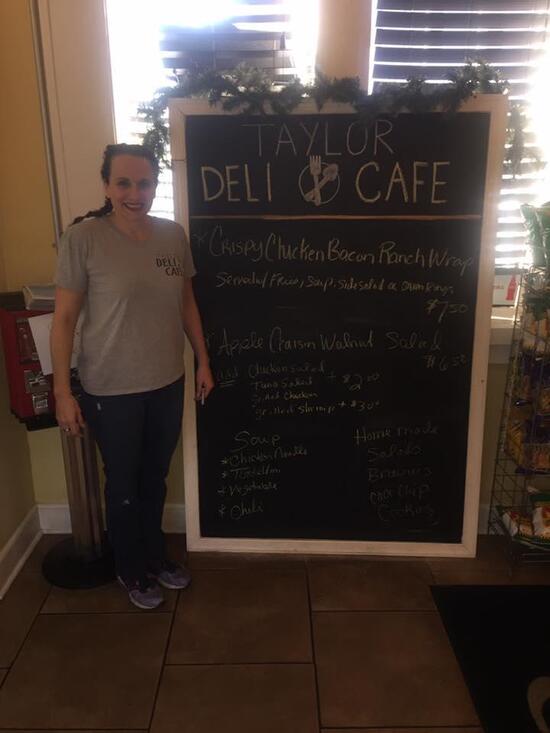 TAYLOR
DELI CAFE
* Crispy Chicken Bacon Ranch Wrap
Served w/ Fries, Soup, Side Salad or Onion Rings
$7.50
* Apple Craisin Walnut Salad
$6.50
add Chicken Salad
Tuna Salad + $2.00
Grilled Chicken
Grilled Shrimp + $3.00
Soup
* Chicken Noodle
* Tortellini
* Vegetable
* Chili
Home made
Salads
Brownies
Choc Chip
Cookies
DELI
CAFE